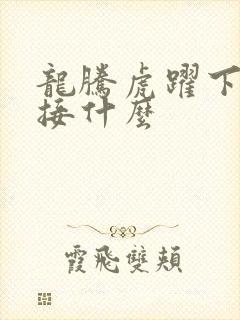 龍騰虎躍下
接什麼
霞飛雙頰